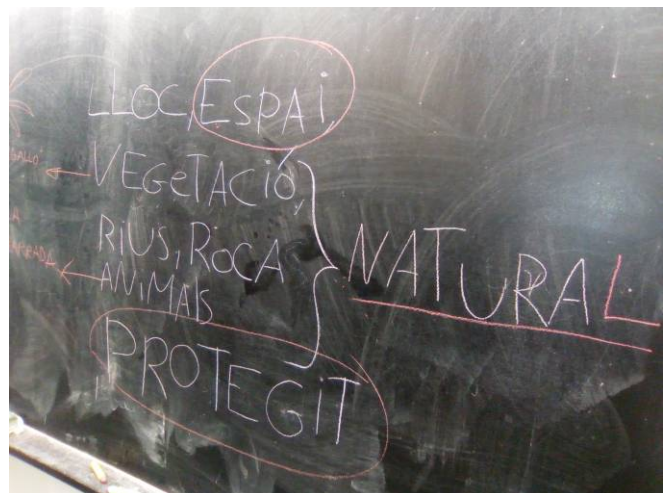 LLOC, ESPAI,
VEGETACIÓ,
RIUS, ROCA
ANIMALS
NATURAL
PROTEGIT